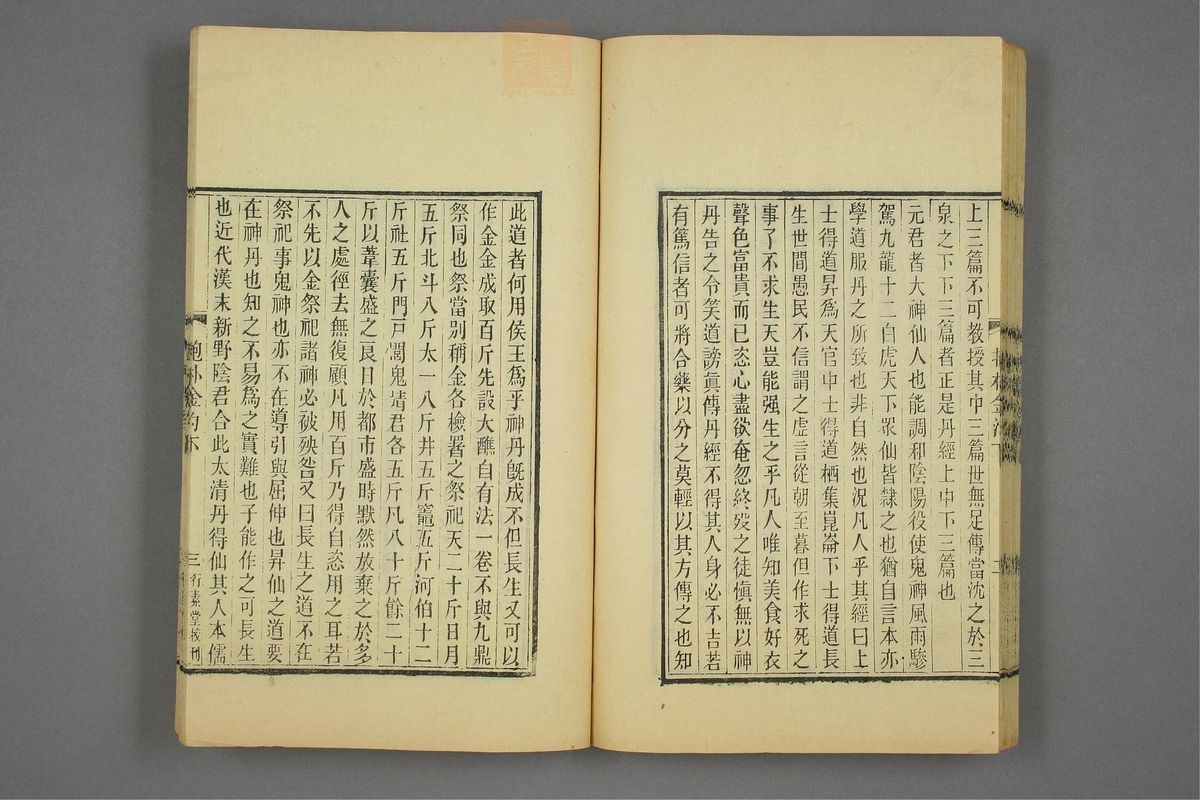 上三篇不可教授其中三篇世無足傳當沈之於三
泉之下下三篇者正是丹經上中下三篇也
元君者大神仙人也能調和陰陽役使鬼神風雨驂
駕九龍十二白虎天下眾仙皆隸之也猶自言本亦
學道服丹之所致也非自然也況凡人乎其經曰上
士得道昇爲天官中士得道栖集崑崙下士得道長
生世間愚民不信謂之虛言從朝至暮但作求死之
事了不求生天豈能强生之乎凡人唯知美食好衣
聲色富貴而已恣心盡欲奄忽終歿之徒愼無以神
丹告之令笑道謗眞傳丹經不得其人身必不吉若
有篤信者可將合藥以分之莫輕以其方傳之也知
此道者何用侯王爲乎神丹旣成不但長生又可以
作金金成取百斤先設大醮自有法一卷不與九鼎
祭同也祭當别稱金各檢署之祭祀天二十斤日月
五斤北斗八斤太一八斤井五斤竈五斤河伯十二
斤社五斤門戸閭鬼凊君各五斤凡八十斤餘二十
斤以葦囊盛之良日於都市盛時默然放棄之於多
人之處徑去無復顧凡用百斤乃得自恣用之耳若
不先以金祭祀諸神必被殃咎又曰長生之道不在
祭祀事鬼神也亦不在導引與屈伸也昇仙之道要
在神丹也知之不易爲之實難也子能作之可長生
也近代漢末新野陰君合此太清丹得仙其人本儒
三 行素堂校刊